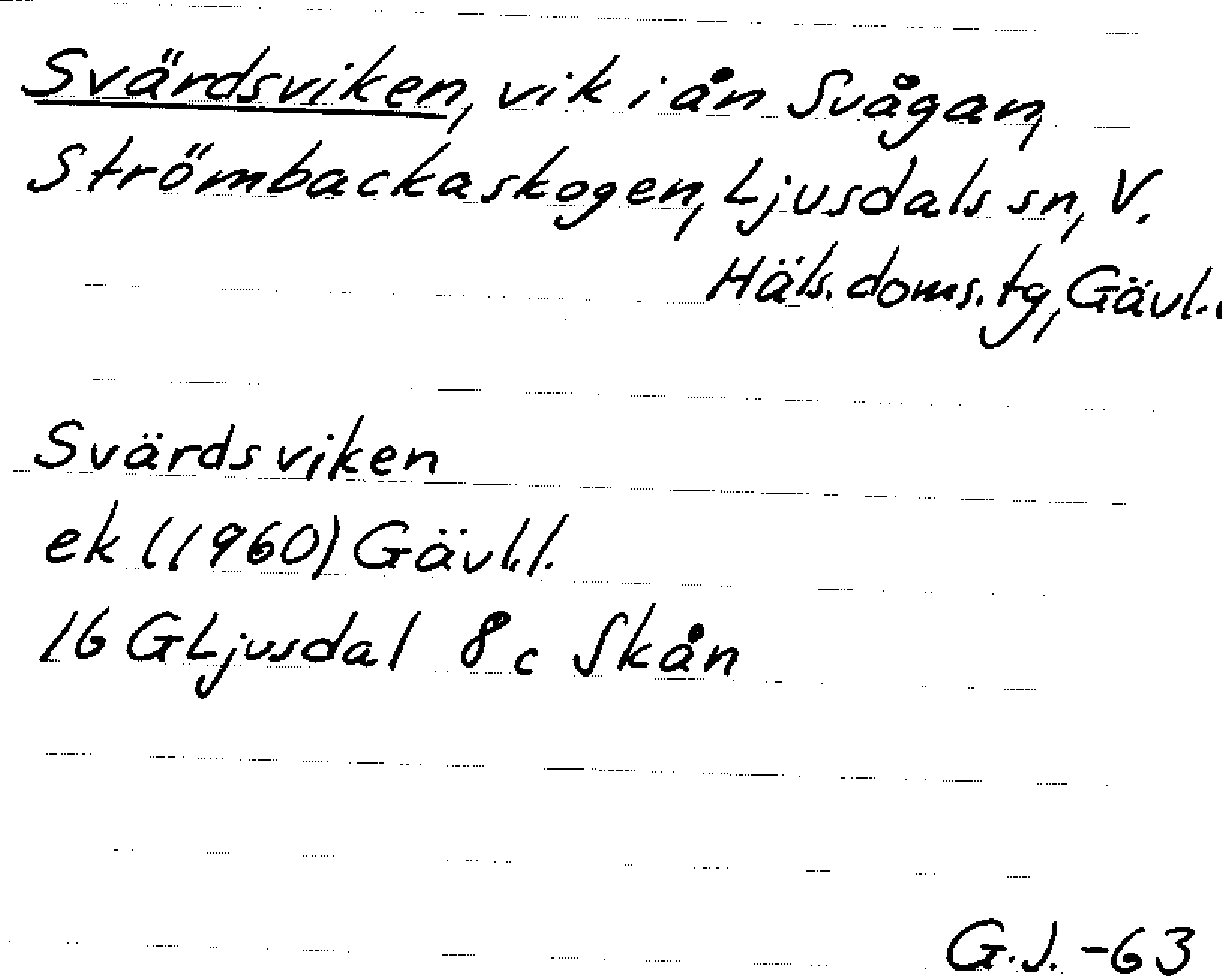 Svärdsviken, vik i ån Svågan,
Strömbackaskogen, Ljusdals sn, V.
Häls. doms. tg, Gävl.l.
Svärdsviken
ek (1960) Gävl.l.
16 G Ljusdal 8 c Skån
G.J. -63